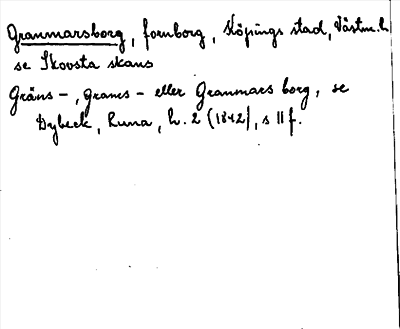 Granmarsborg, fornborg, Köpings stad, Västm.l.
se Skovsta skans
Gräns-, grams- eller Granmars borg, se
Dybeck, Runa, h. 2 (1842), s 11 f.